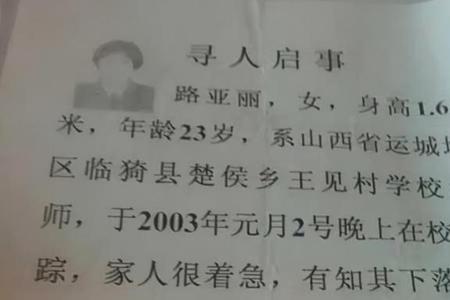 寻人启事
路亚丽，女，身高1.6
米，年龄23岁，系山西省运城
区临猗县楚侯乡王见村学校
师，于2003年元月2号晚上在校
踪，家人很着急，有知其下落